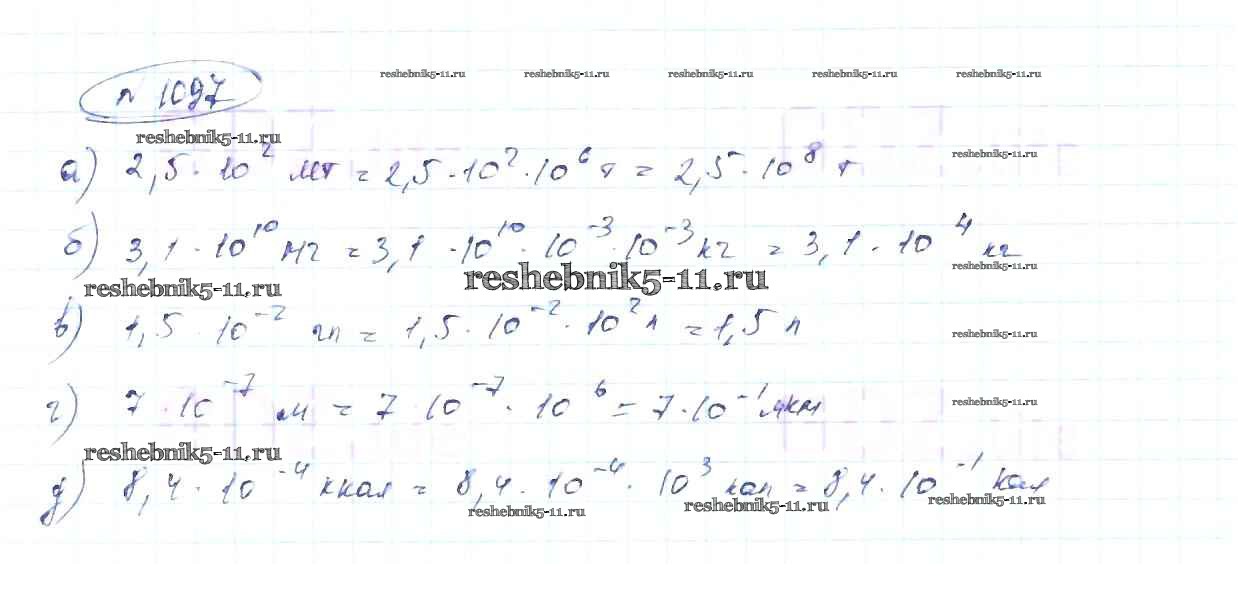 reshebnik5-11.ru reshebnik5-11.ru reshebnik5-11.ru reshebnik5-11.ru reshebnik5-11.ru
п 1097
reshebnik5-11.ru
reshebnik5-11.ru
а) 2,5 · 10² Мт = 2,5 · 10² · 10⁶ т = 2,5 · 10⁸ т
б) 3,1 · 10¹⁰ мг = 3,1 · 10¹⁰ · 10⁻³ · 10⁻³ кг = 3,1 · 10⁴ кг
reshebnik5-11.ru reshebnik5-11.ru reshebnik5-11.ru
в) 1,5 · 10⁻² гл = 1,5 · 10⁻² · 10² л = 1,5 л
reshebnik5-11.ru
г) 7 · 10⁻⁷ м = 7 · 10⁻⁷ · 10⁶ = 7 · 10⁻¹ мкм
reshebnik5-11.ru
reshebnik5-11.ru
д) 8,4 · 10⁻⁴ ккал = 8,4 · 10⁻⁴ · 10³ кал = 8,4 · 10⁻¹ кал
reshebnik5-11.ru reshebnik5-11.ru reshebnik5-11.ru